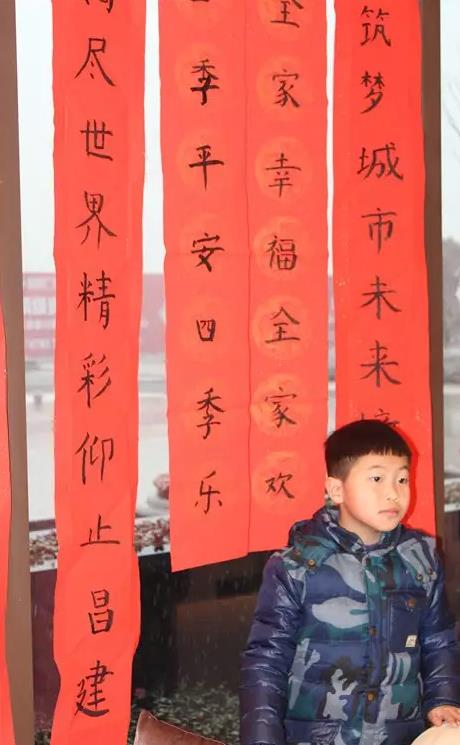 筑梦城市未来
全家幸福全家欢
季平安四季乐
尽世界精彩仰止昌建